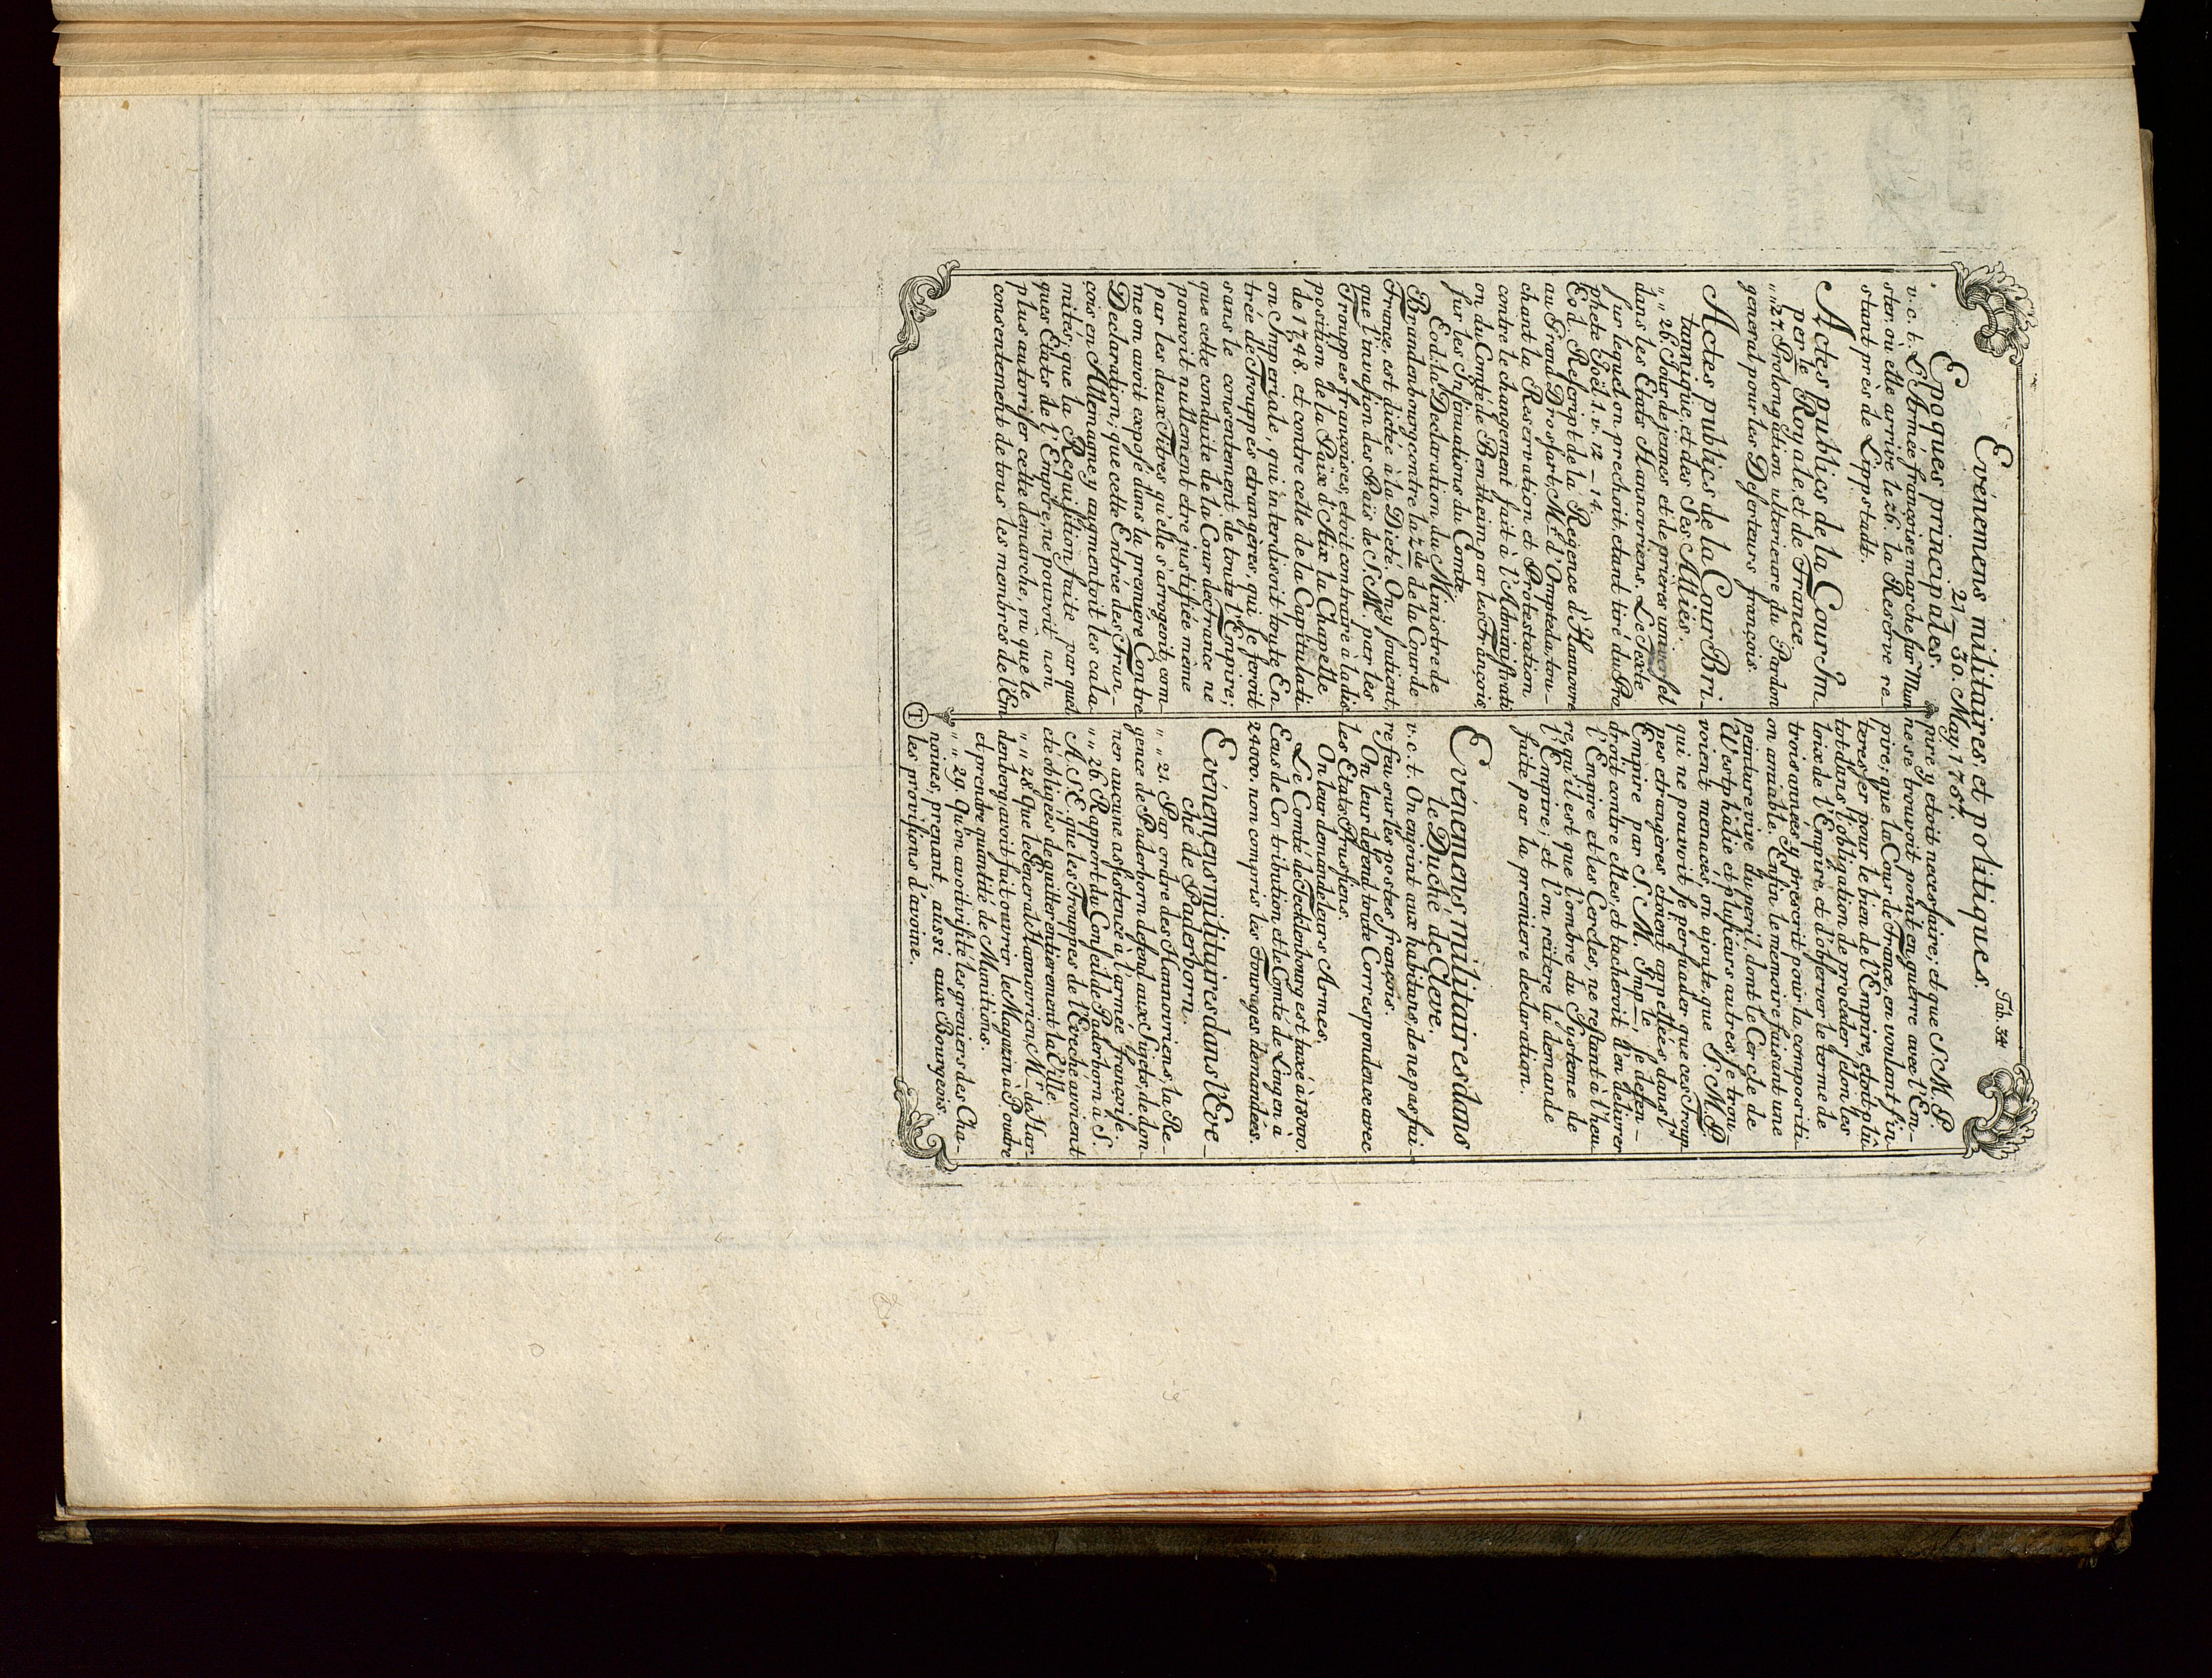 Tab. 34
Evénemens militaires, et politiques.
21 – 30. May. 1757.
Epoques principales.
v. c. t. L'Armée françoise marche sur Mun
ster, où elle arrive le 26. la Reserve re-
stant près de Lippstadt.
Actes publics de la Cour Im
perle Royale et de France.
„ „ 27. Prolongation ulterieure du Pardon
general pour les Deserteurs françois.
Actes publics de la Cour Bri-
tannique, et des Ses Alliés.
„ „ 26. Jour de jeunes et de prières universel
dans les Etats Hannovriens. Le Texte
sur lequel on prechoit, etant tiré du Pro
phete Joël 1. v. 12 – 14.
Eod. Rescript de la Regence d'Hannovre
au Grand Drossart, Mr. d'Ompteda, tou-
chant la Reservation et Protestation
contre le changement fait à l'Administrati
on du Comté de Bentheim par les François,
sur les Insinuations du Comte.
Eod. la Declaration du Ministre de
Brandenbourg contre la 2de de la Cour de
France, est dictée à la Dieté. On y soutient,
que l'invasion des Païs de S. M. par les
Trouppes françoises, etoit contraire à la dis
position de la Paix d'Aix la Chapelle
de 1748. et contre celle de la Capitulati
on Imperiale, qui interdisoit toute En
trée de Trouppes etrangères, qui se feroit
sans le consentement de toute l'Empire;
que cette conduite de la Cour de france ne
pouvoit nullement etre justifiée même
par les deux Titres qu'elle s'arrogeoit, com-
me on avoit exposé dans la premiere Contre
Declaration; que cette Entrée des Fran-
cois en Allemagne y augmentoit les cala-
mités, que la Requisition faite par quel
ques Etats de l'Empire, ne pouvoit non
plus autoriser cette demarche, vû que le
consentement de tous les membres de l'Em
pire y etoit necessaire; et que S. M. P.
ne se trouvoit point en guerre avec l'Em-
pire; que la Cour de France, en voulant s'in-
teresser pour le bien de l'Empire, etoit plû
tot dans l'obligation de proceder selon les
loix de l'Empire, et d'observer le terme de
trois années y prescrit pour la compositi-
on amiable. Enfin le memoire faisant une
peinture vive du peril, dont le Cercle de
Westphalie et plusieurs autres se trou-
voient menacés, on ajoute, que S. M. P.
qui ne pouvoit se persuader que ces Troup
pes etrangères etment appellées dans l'
Empire par S. M. Imple, se defen-
droit contre elles, et tacheroit d'en delivrer
l'Empire et les Cercles, ne restant à l'heu
re, qu'il est que l'ombre du Systeme de
l'Empire; et l'on reïtere la demande
faite par la premiere declaration.
Evénemens militaires dans
le Duché de Cleve.
v. c. t. On enjoint aux habitans, de ne pas fai-
re feu sur les postes françois.
On leur defend toute Correspondence avec
les Etats Prussiens.
On leur demande leurs Armes.
Le Comté de Tecklenbourg est taxé à 18000.
Ecus de Contribution, et le Comté de Lingen à
24000. non compris les Fourages demandées.
Evénemens militaires dans l'Eve-
ché de Paderborn.
„ „ 21. Par ordre des Hannovriens, la Re-
gence de Paderborn defend aux Sujets, de don-
ner aucune assistence à l'armée françoise.
„ „ 26. Rapport du Conseil de Paderborn à S.
A. S. E. que les Trouppes de l'Evêché avoient
eté obligés de quitter entierement la Ville.
„ „ 28. Que le General Hannovrien, Mr. de Har-
denberg, avoit fait ouvrir le Magazin à Poudre
et prendre quantité de Munitions.
„ „ 29. Qu'on avoit visité les greniers des Cha-
noines, prenant, aussi aux Bourgeois,
les provisions d'avoine.
T